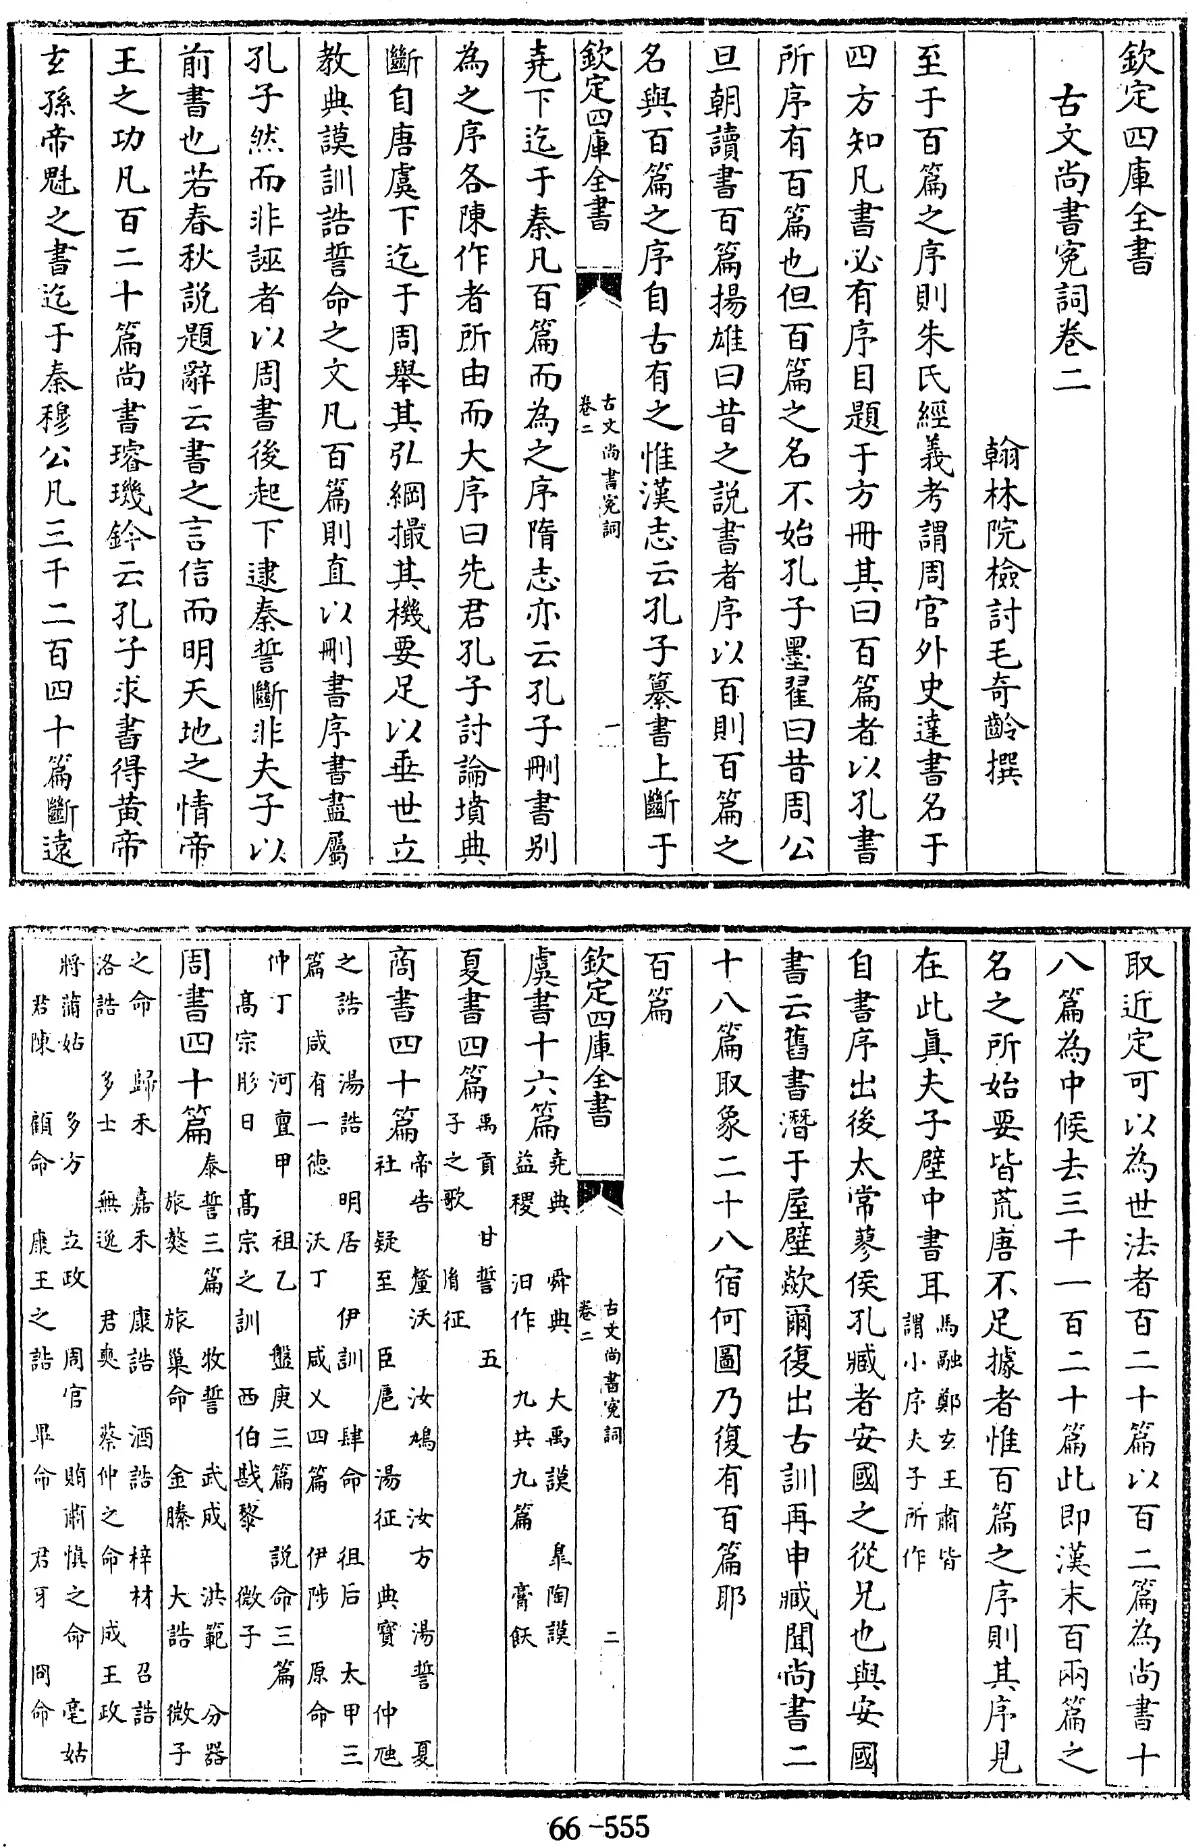 欽定四庫全書
古文尚書寃詞卷二
翰林院檢討毛奇齡撰
至于百篇之序則朱氏經義考謂周官外史達書名于
四方知凡書必有序目題于方冊其曰百篇者以孔書
所序有百篇也但百篇之名不始孔子墨翟曰昔周公
旦朝讀書百篇揚雄曰昔之説書者序以百則百篇之
名與百篇之序自古有之惟漢志云孔子纂書上斷于
欽定四庫全書
古文尚書寃詞
卷二
一
堯下迄于秦凡百篇而為之序隋志亦云孔子刪書别
為之序各陳作者所由而大序曰先君孔子討論墳典
斷自唐虞下迄于周舉其弘綱撮其機要足以垂世立
教典謨訓誥誓命之文凡百篇則直以刪書序書盡屬
孔子然而非誣者以周書後起下逮秦誓斷非夫子以
前書也若春秋説題辭云書之言信而明天地之情帝
王之功凡百二十篇尚書璿璣鈐云孔子求書得黄帝
玄孫帝魁之書迄于秦穆公凡三千二百四十篇斷遠
取近定可以為世法者百二十篇以百二篇為尚書十
八篇為中候去三千一百二十篇此即漢末百兩篇之
名之所始要皆荒唐不足據者惟百篇之序則其序見
在此真夫子壁中書耳馬融鄭玄王肅皆
謂小序夫子所作
自書序出後太常蓼侯孔臧者安國之從兄也與安國
書云舊書潛于屋壁歘爾復出古訓再申臧聞尚書二
十八篇取象二十八宿何圖乃復有百篇耶
百篇
欽定四庫全書
古文尚書寃詞
卷二
二
虞書十六篇堯典 舜典 大禹謨 皋陶謨
益稷 汨作 九共九篇 膏飫
夏書四篇禹貢 甘誓 五
子之歌 胤征
商書四十篇帝告 釐沃 汝鳩 汝方 湯誓 夏
社 疑至 臣扈 湯征 典寶 仲虺
之誥 湯誥 明居 伊訓 肆命 徂后 太甲三
篇 咸有一德 沃丁 咸乂四篇 伊陟 原命
仲丁 河亶甲 祖乙 盤庚三篇 説命三篇
高宗肜日 高宗之訓 西伯戡黎 微子
周書四十篇泰誓三篇 牧誓 武成 洪範 分器
旅獒 旅巢命 金縢 大誥 微子
之命 歸禾 嘉禾 康誥 酒誥 梓材 召誥
洛誥 多士 無逸 君奭 蔡仲之命 成王政
將蒲姑 多方 立政 周官 賄肅慎之命 亳姑
君陳 顧命 康王之誥 畢命 君牙 冏命
66-555